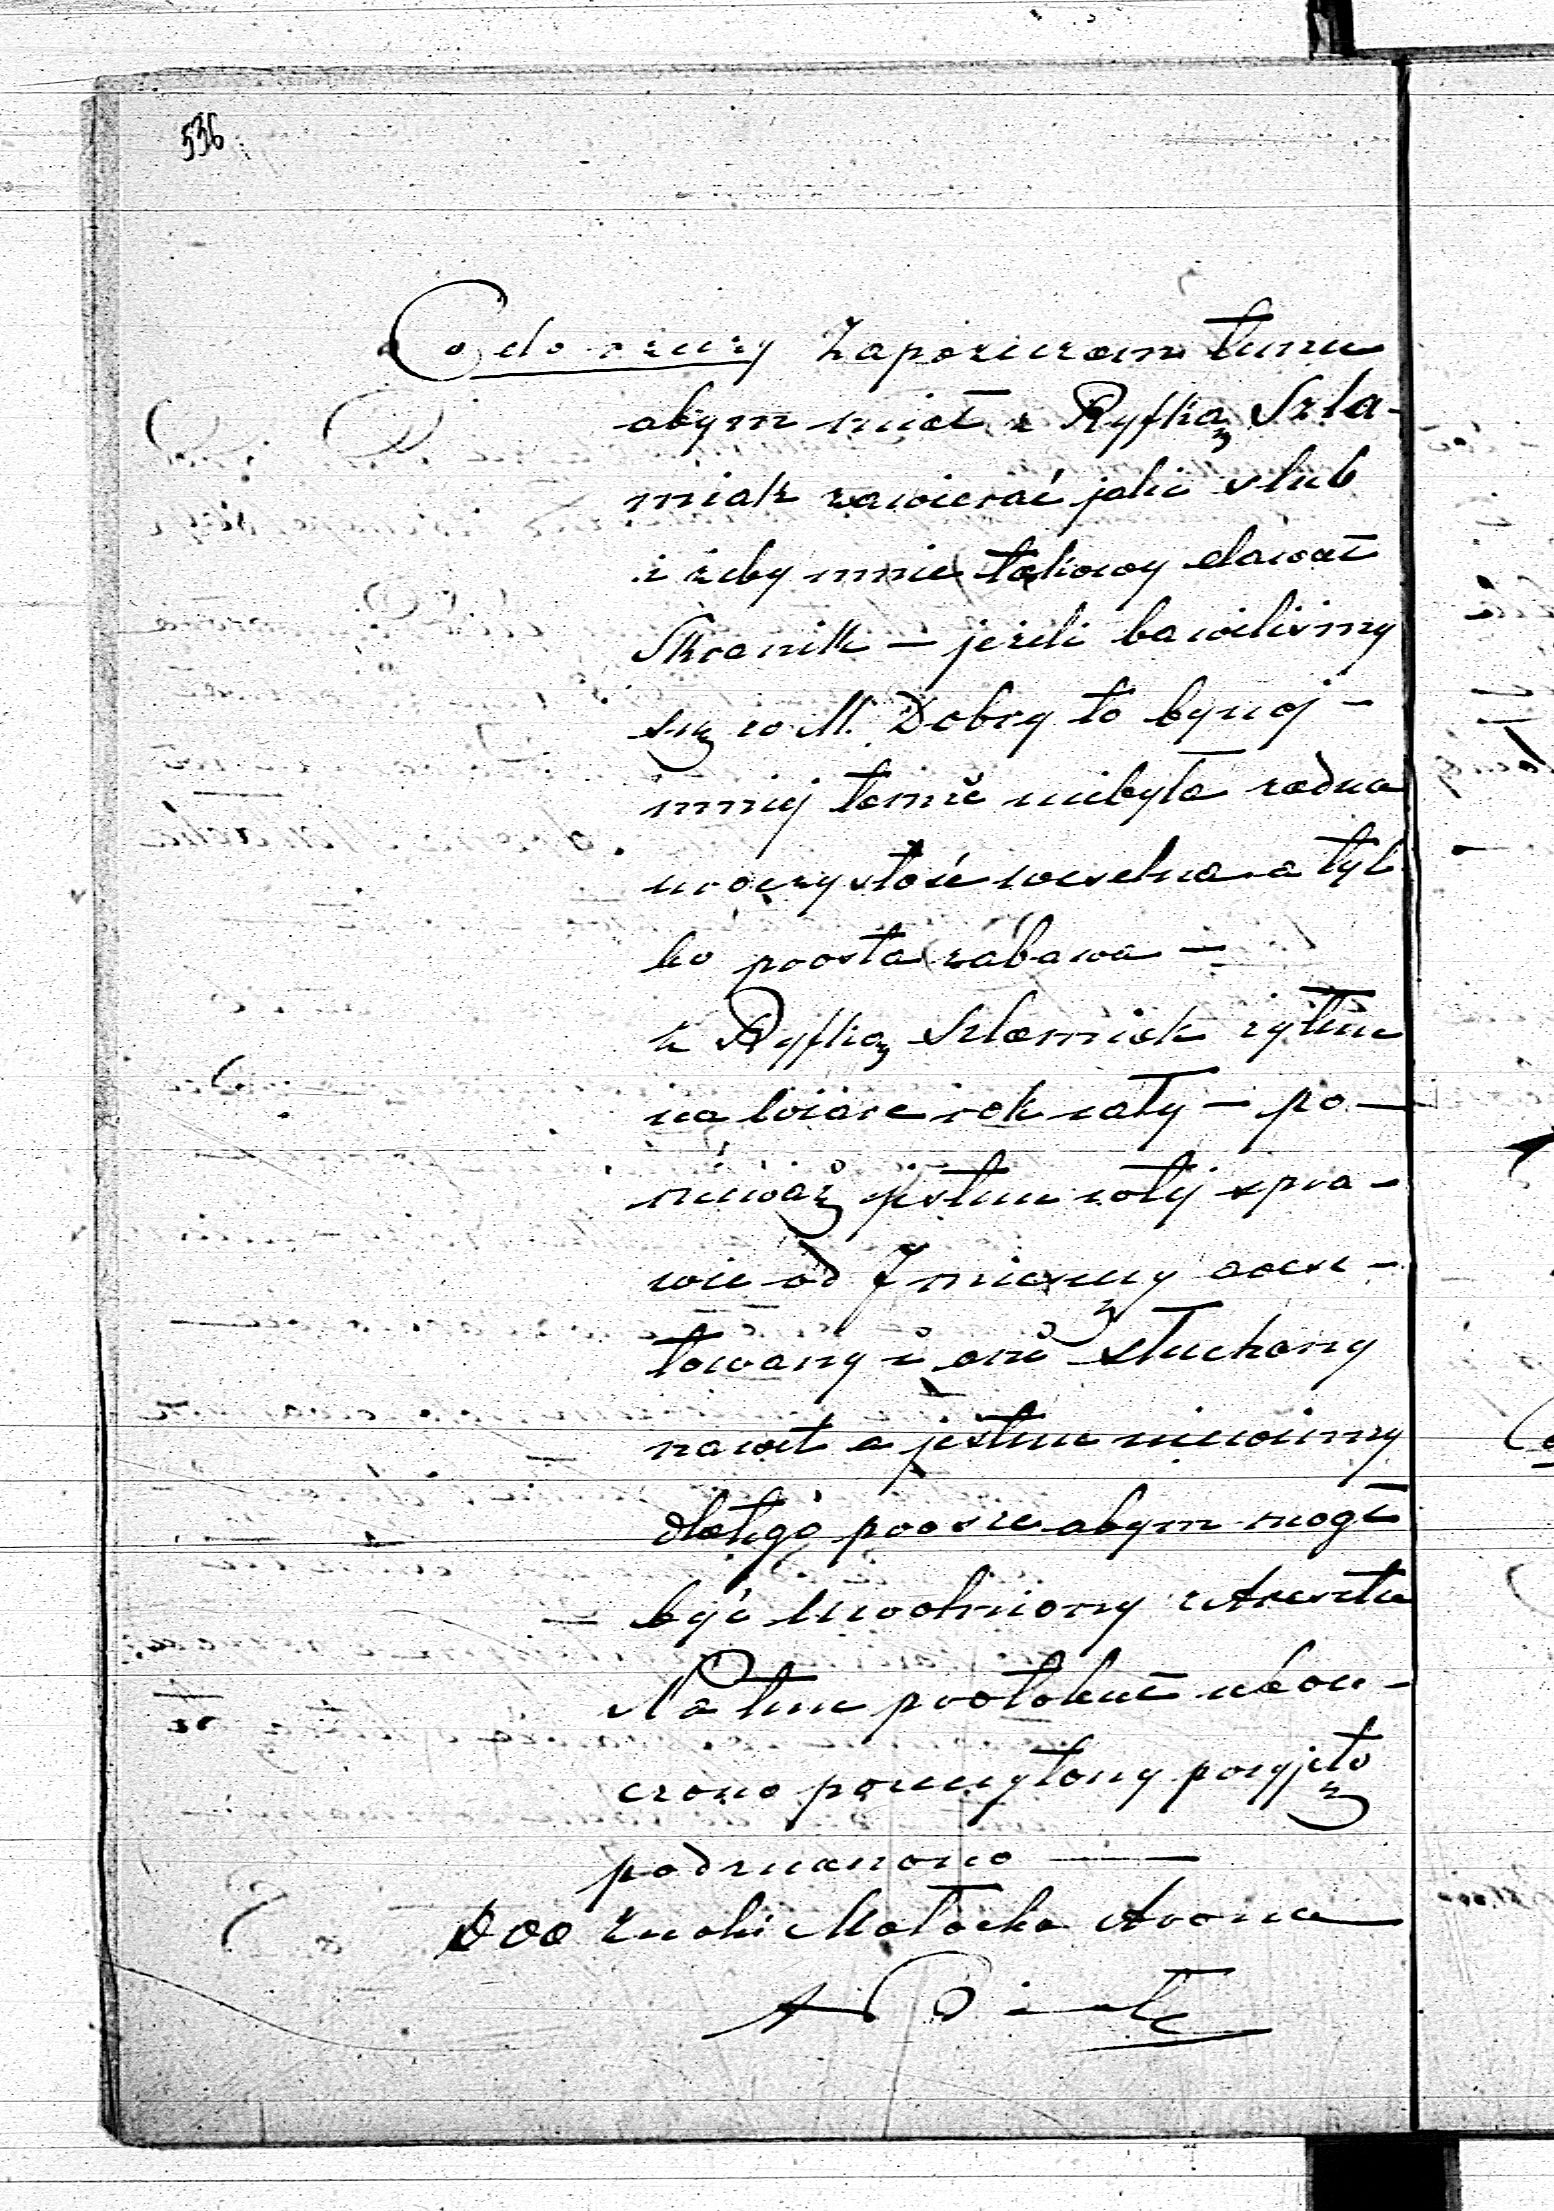 536
Co do rzeczy Zaprzeczam temu
abym miał z Ryfką Szla-
miak zawierać jaki ślub
i żeby mnie takowy dawał
Skronik — jeżeli bawiliśmy
się w M. Dobry to bynaj-
mniej tamże niebyła żadna
uroczystość weselna a tyl
ko prosta zabawa —
z Ryfką Szlamiak żyłem
na wiarę rok cały — po-
nieważ jestem w tej spra-
wie od miesięcy aresz-
towany i ani słuchany
nawet a jestem niewinny
dlatego proszę abym mógł
być uwolniony z Aresztu
Na tem protokuł ukoń-
czono poczytany przyjęto
podznaczono —
ooo znaki Małocha Arona